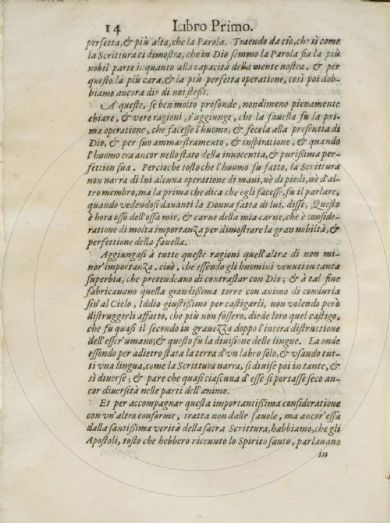 14 Libro Primo.
perfetta, & più alta, che la Parola. Traendo da ciò, che sì come
la Scrittura ci dimostra, che in Dio sommo la Parola sia la più
nobil parte in quanto alla capacità della mente nostra, & per
questo la più cara, & la più perfetta operatione, così poi dob-
biamo ancora dir di noi stessi.
A queste, se ben molto profonde, nondimeno pienamente
chiare, & vere ragioni, s'aggiunge, che la fauella fu la pri-
ma operatione, che facesse l'huomo, & fecela alla presentia di
Dio, & per suo ammaestramento, & inspiratione, & quando
l'huomo era ancor nello stato della innocentia, & purissima per-
fettion sua. Percioche tosto che l'huomo fu fatto, la Scrittura
non narra di lui alcuna operatione di mani, nè di piedi, nè d'al-
tro membro, ma la prima che dica che egli facesse, fu il parlare,
quando vedendosi dauanti la Donna fatta di lui, disse, Questo
è hora osso dell'ossa mie, & carne della mia carne, che è conside-
ratione di molta importanza per dimostrare la gran nobiltà, &
perfettione della fauella.
Aggiungasi à tutte queste ragioni quell'altra di non mi-
nor'importanza, cioè, che essendo gli huomini venuti in tanta
superbia, che pretendeano di contrastar con Dio; & à tal fine
fabricauano quella grandissima torre con animo di condurla
fin'al Cielo, Iddio giustissimo per castigarli, non volendo però
distruggerli affatto, che più non fossero, diede loro quel castigo,
che fu quasi il secondo in grauezza doppo l'intera distruttione
dell'esser'umano; & questo fu la diuisione delle lingue. La onde
essendo per adietro stata la terra d'vn labro solo, & vsando tut-
ti vna lingua, come la Scrittura narra, si diuise poi in tante, &
sì diuerse; & pare que quasi ciascuna d'esse si portasse seco an-
cor diuersità nelle parti dell'animo.
Et per accompagnar questa importantissima consideratione
con vn'altra conforme, tratta non dalle fauole, ma ancor'essa
dalla santissima verità della sacra Scrittura, habbiamo, che gli
Apostoli, tosto che hebbero riceuuto lo Spirito santo, parlauano
in